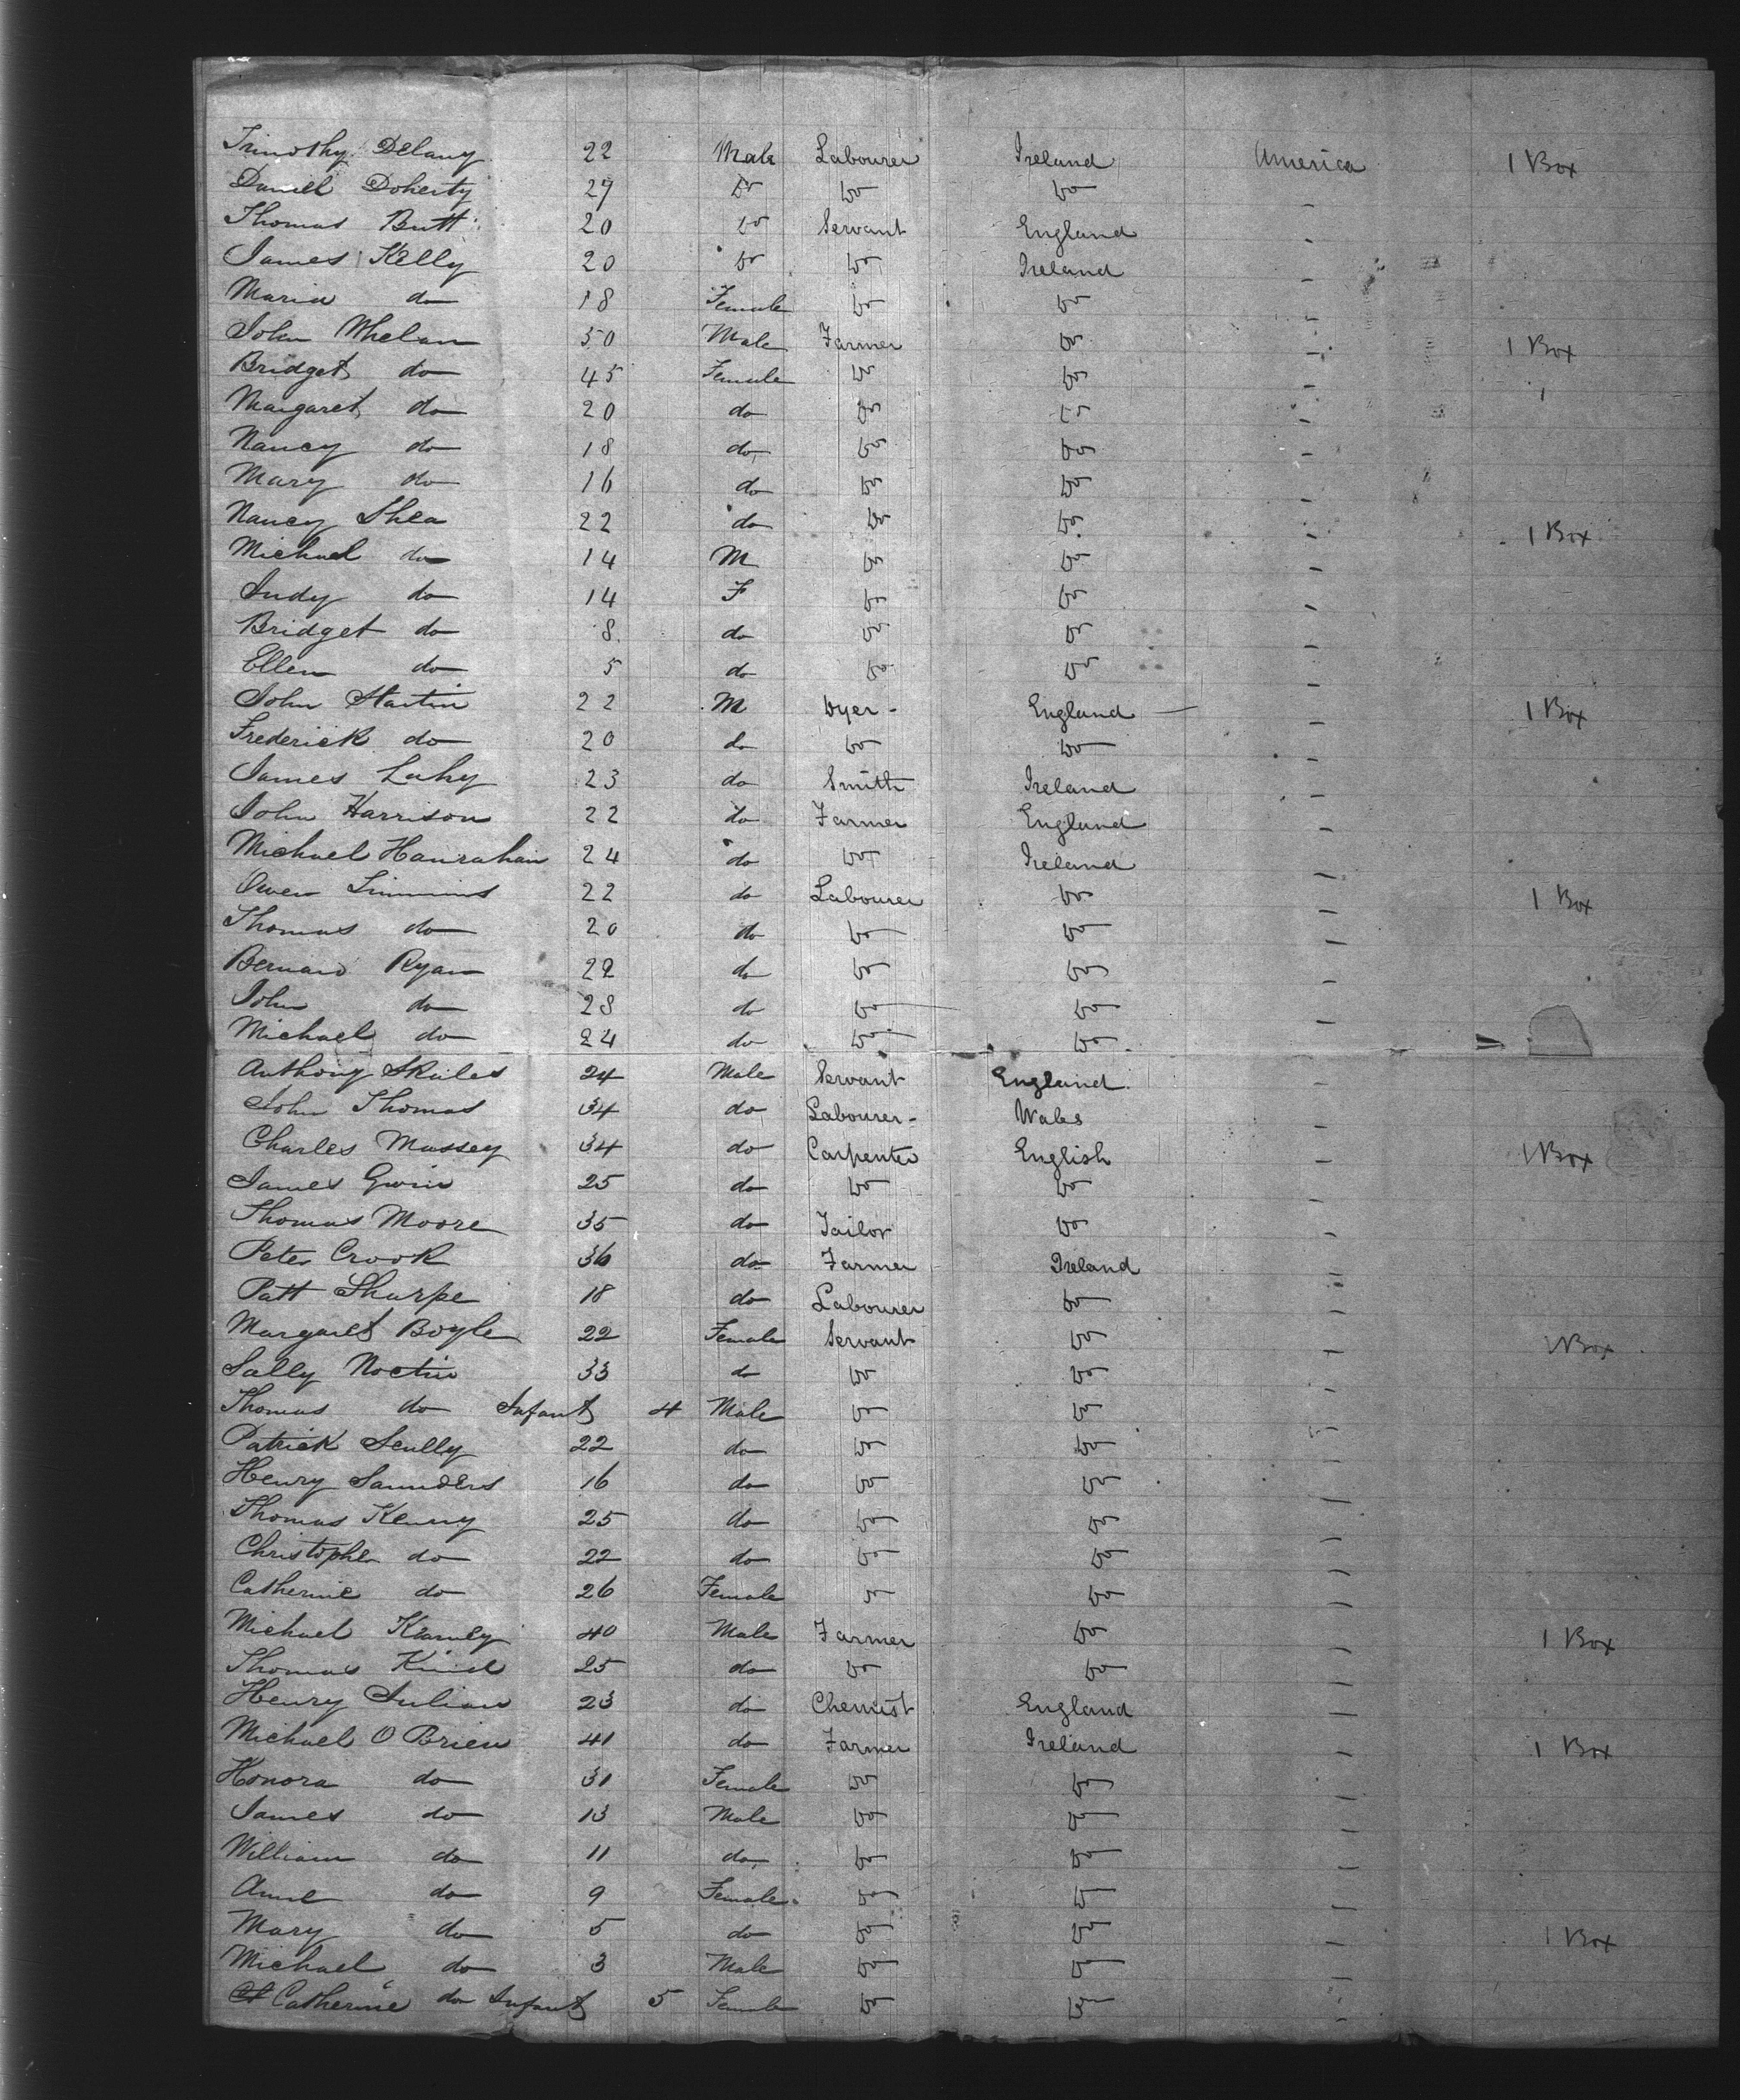 Timothy Delany 22 Male Labourer Ireland America 1 Box
Daniel Doherty 29 Do Do Do -
Thomas Butt 20 Do Servant England -
James Kelly 20 Do Do Ireland -
Maria do 18 Female Do Do -
John Whelan 50 Male Farmer Do - 1 Box
Bridget do 45 Female Do Do - 1
Margaret do 20 do Do Do -
Nancy do 18 do Do Do -
Mary do 16 do Do Do -
Nancy Shea 22 do Do Do - 1 Box
Michael do 14 M Do Do -
Judy do 14 F Do Do -
Bridget do 8 do Do Do -
Ellen do 5 do Do Do -
John Startin 22 M Dyer - England - 1 Box
Frederick do 20 do Do Do -
James Lahy 23 do Smith Ireland -
John Harrison 22 do Farmer England -
Michael Hanrahan 24 do Do Ireland -
Owen Simmins 22 do Labourer Do - 1 Box
Thomas do 20 do Do Do -
Bernard Ryan 22 do Do Do -
John do 28 do Do Do -
Michael do 24 do Do Do
Anthony Skiles 24 Male Servant England -
John Thomas 34 do Labourer - Wales -
Charles Massey 34 do Carpenter English - 1 Box
James Gwin 25 do Do Do -
Thomas Moore 35 do Tailor Do -
Peter Crook 36 do Farmer Ireland -
Patt Sharpe 18 do Labourer Do -
Margaret Boyle 22 Female Servant Do - 1 Box
Sally 33 do Do Do -
Thomas do Infant 4 Male Do Do -
Patrick Scully 22 do Do Do -
Henry Saunders 16 do Do Do -
Thomas Kenny 25 do Do Do -
Christopher do 22 do Do Do -
Catherine do 26 Female Do Do -
Michael 40 Male Farmer Do - 1 Box
Thomas 25 do Do Do -
Henry Julian 23 do Chemist England -
Michael O Brien 41 do Farmer Ireland - 1 Box
Honora do 31 Female Do Do -
James do 13 Male Do Do -
William do 11 do Do Do -
Anne do 9 Female Do Do -
Mary do 5 do Do Do - 1 Box
Michael do 3 Male Do Do -
Catherine do Infant 5 Female Do Do -